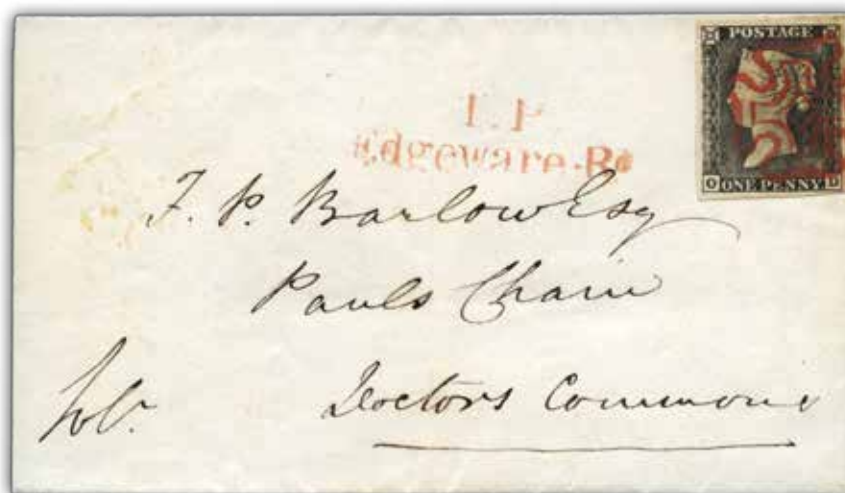 POSTAGE
O ONE PENNY D
T.P
Edgeware-Rd
F. P. Barlow Esq
Pauls Chain
Doctors Commons